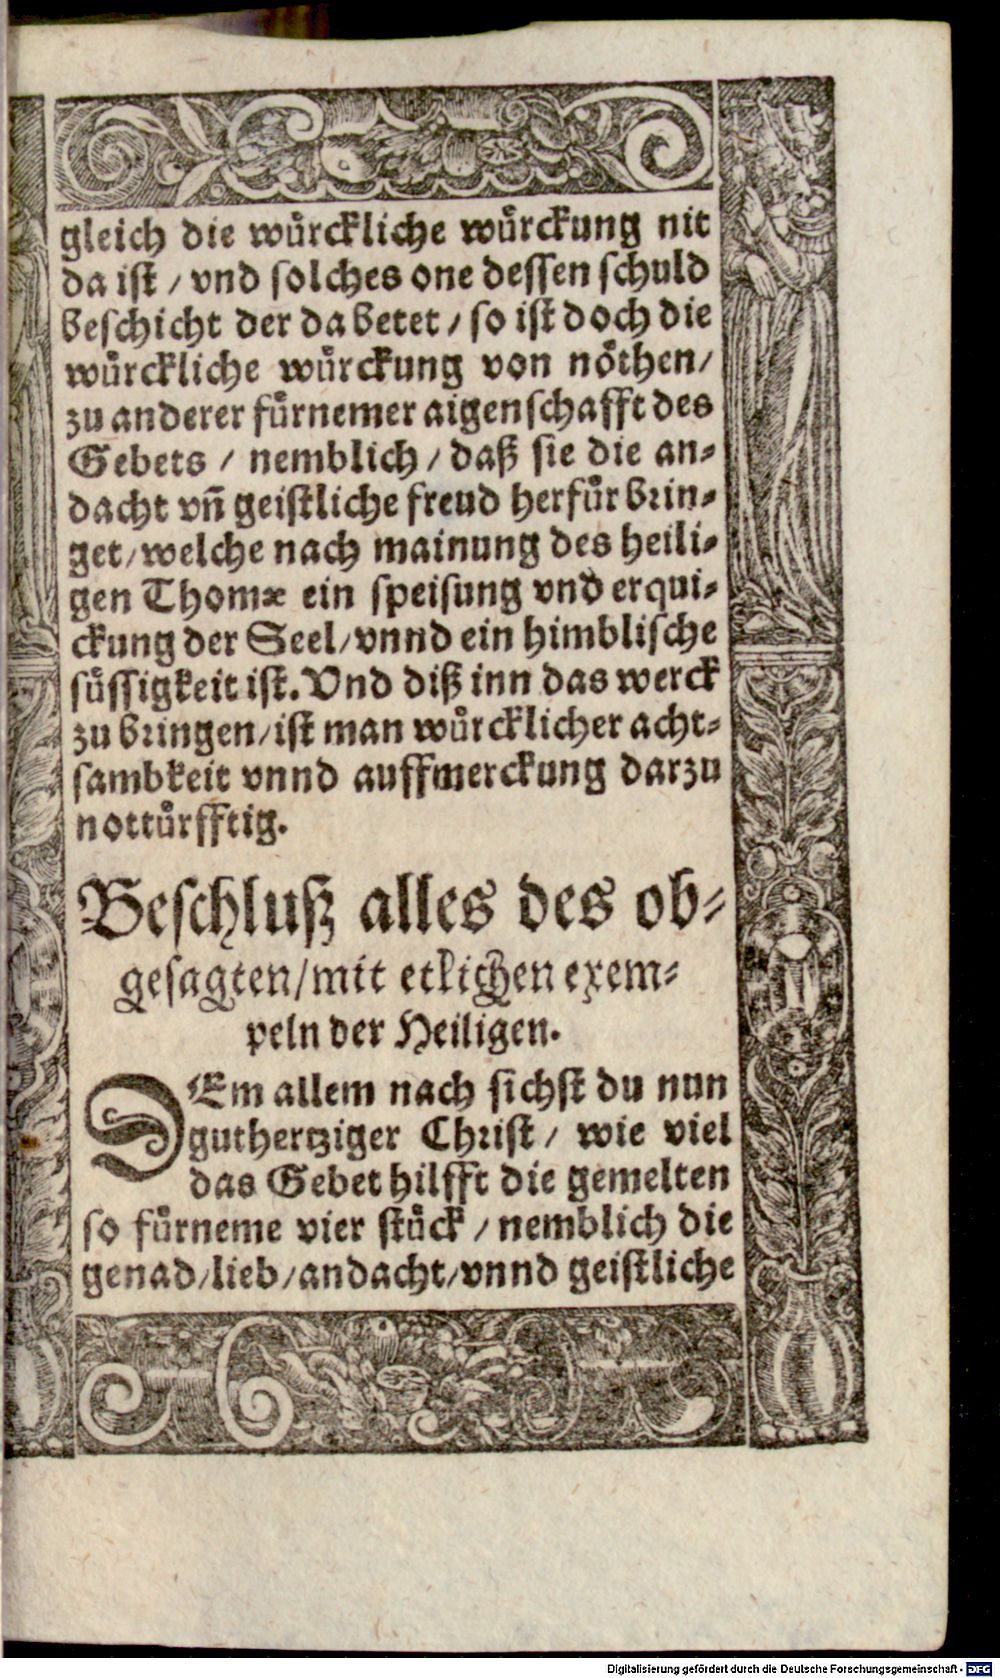 gleich die wuͤrckliche wuͤrckung nit
da ist / vnd solches one dessen schuld
beschicht der da betet / so ist doch die
wuͤrckliche wuͤrckung von noͤthen /
zu anderer fuͤrnemer aigenschafft des
Gebets / nemblich / daß sie die an⸗
dacht vñ geistliche freud herfuͤr brin⸗
get / welche nach mainung des heili⸗
gen Thomæ ein speisung vnd erqui⸗
ckung der Seel / vnnd ein himblische
suͤssigkeit ist. Vnd diß inn das werck
zu bringen / ist man wuͤrcklicher acht⸗
sambkeit vnnd auffmerckung darzu
nottuͤrfftig.
Beschluß alles des ob⸗
gesagten / mit etlichen exem⸗
peln der Heiligen.
DEm allem nach sichst du nun
guthertziger Christ / wie viel
das Gebet hilfft die gemelten
so fuͤrneme vier stuͤck / nemblich die
genad / lieb / andacht / vnnd geistliche
Digitalisierung gefördert durch die Deutsche Forschungsgemeinschaft - DFG